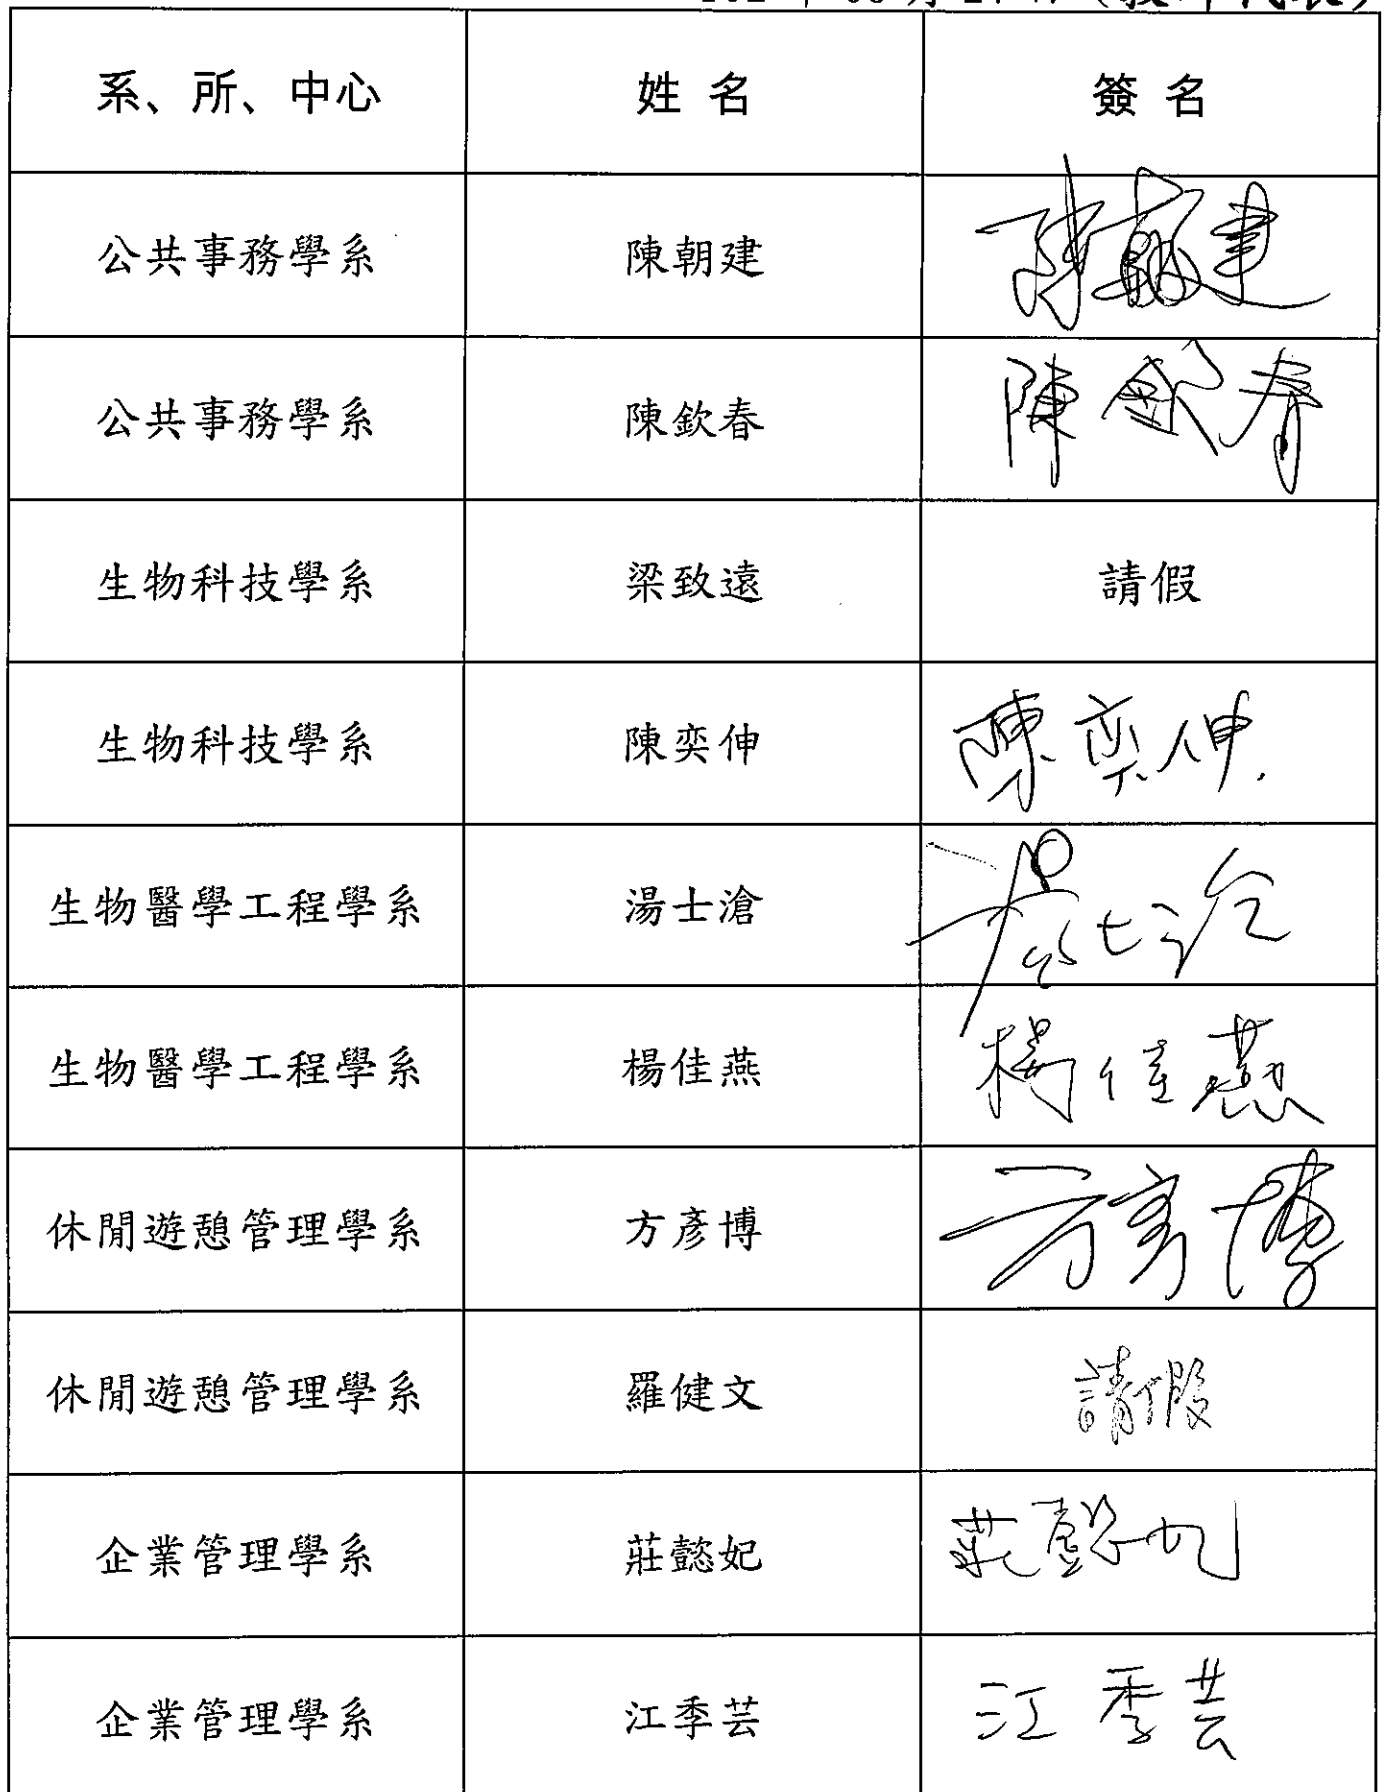 系、所、中心 姓名 簽名
公共事務學系 陳朝建 陳朝建
公共事務學系 陳欽春 陳欽春
生物科技學系 梁致遠 請假
生物科技學系 陳奕伸 陳奕伸
生物醫學工程學系 湯士滄 湯士滄
生物醫學工程學系 楊佳燕 楊佳燕
休閒遊憩管理學系 方彥博 方彥博
休閒遊憩管理學系 羅健文 請假
企業管理學系 莊懿妃 莊懿妃
企業管理學系 江季芸 江季芸